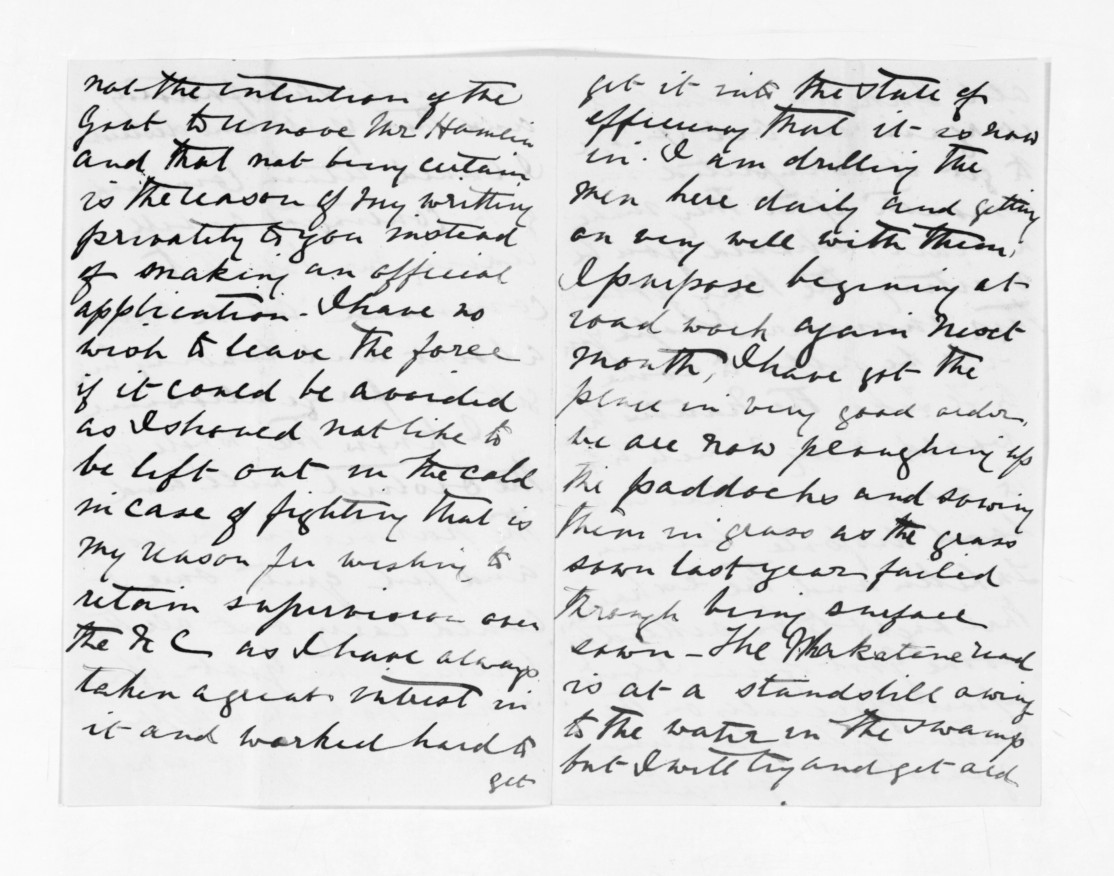 not the intention of the
Govt to remove Mr Hamlin
and, that not being certain
is the reason of my writting
privately to you instead
of making an official
application - I have no
wish to leave the force
if it could be avoided
as I should not like to
be left out in the cold
in case of fighting that is
my reason for wishing to
retain supervision over
the N C as I have always
taken a great interest in
it and worked hard to
get
get it into the state of
efficiency that it is now
in. I am drilling the
men here daily and getting
on very well with them,
I purpose begining at
road work again next
month, I have got the
place in very good order,
we are now ploughing up
the paddocks and sowing
them in grass as the grass
sown last year failed
through being surface
sown - The road
is at a standstill owing
to the water in the swamp
but I will try and get old